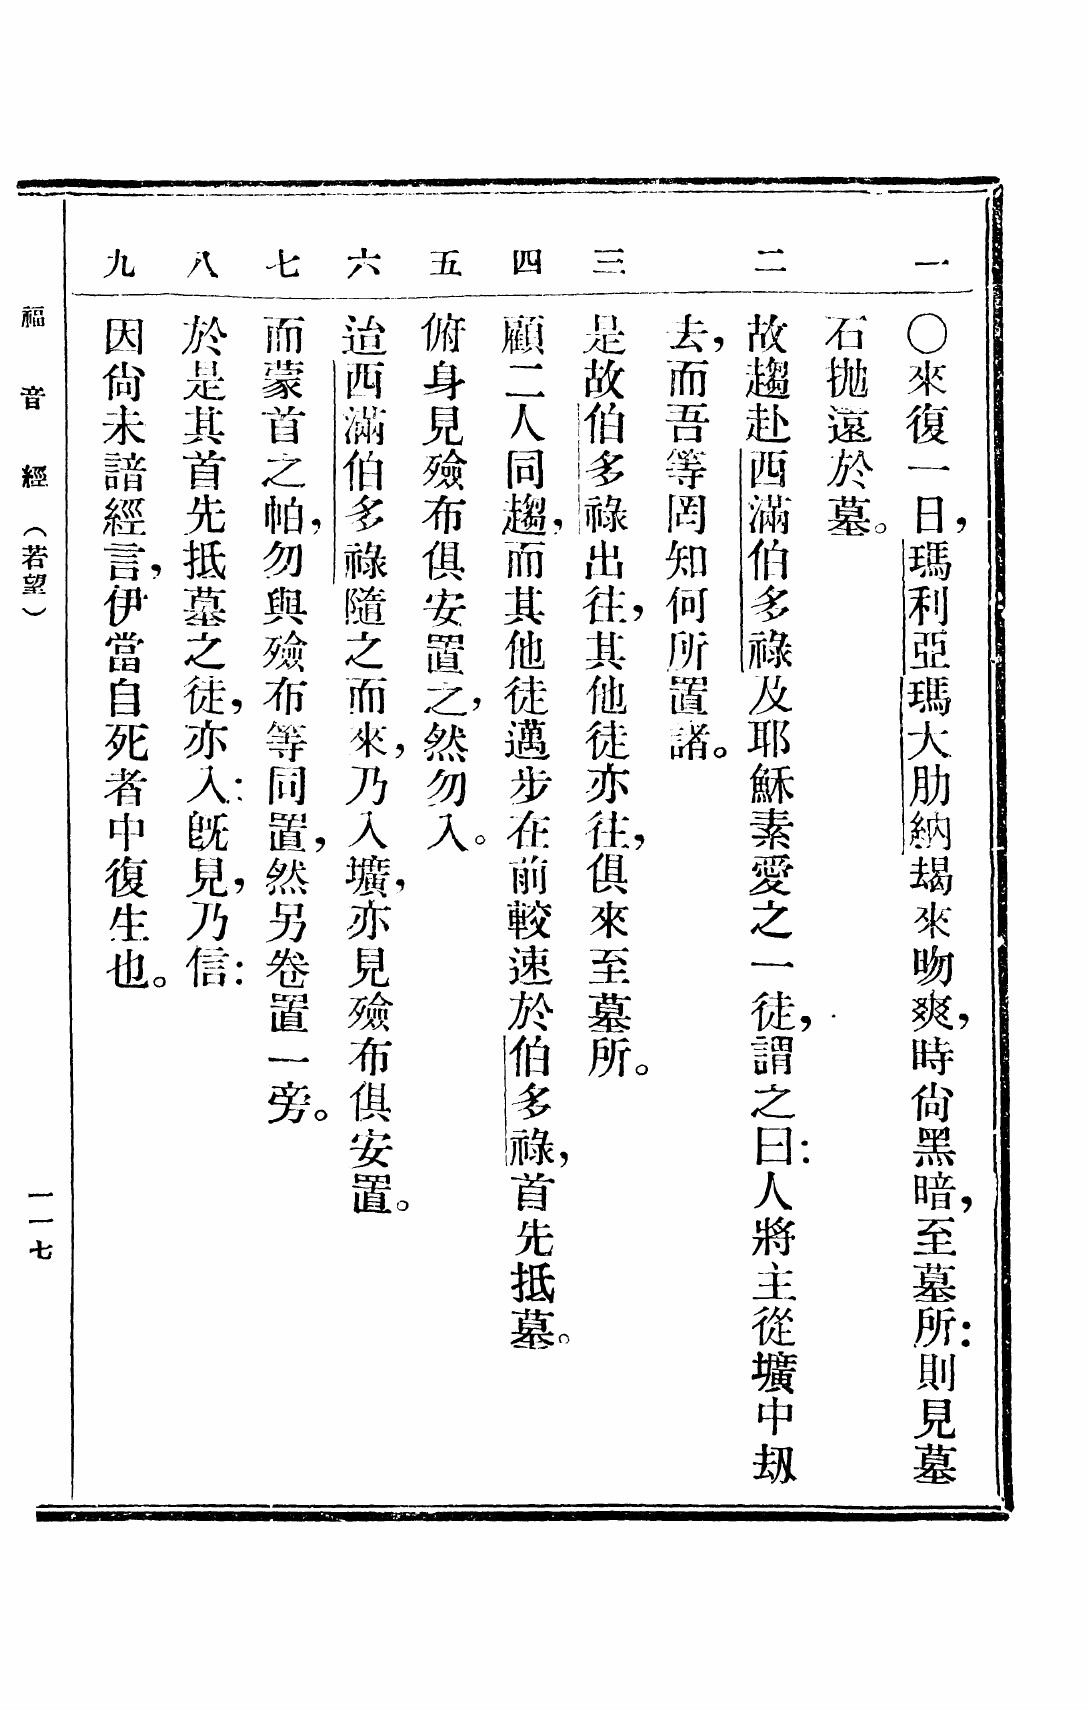 一
〇來復一日，瑪利亞瑪大肋納朅來昒爽，時尙黑暗，至墓所：則見墓
石拋遠於墓。
二
故趨赴西滿伯多祿及耶穌素愛之一徒，謂之曰：人將主從壙中刼
去，而吾等罔知何所置諸。
三
是故伯多祿出往，其他徒亦往，俱來至墓所。
四
顧二人同趨，而其他徒邁步在前較速於伯多祿，首先抵墓。
五
俯身見殮布俱安置之，然勿入。
六
迨西滿伯多祿隨之而來，乃入壙，亦見殮布俱安置。
七
而蒙首之帕，勿與殮布等同置，然另卷置一旁。
八
於是其首先抵墓之徒，亦入：旣見，乃信：
九
因尙未諳經言，伊當自死者中復生也。
福音經（若望）
一一七